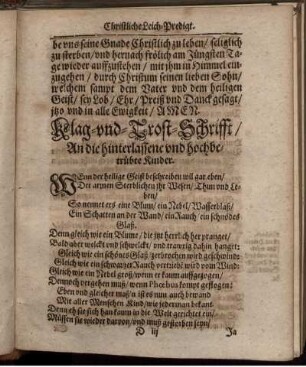 Christliche Leich-Predigt.
be vns seine Gnade Christlich zu leben / seliglich
zu sterben / vnd hernach frölich am Jüngsten Ta-
ge wieder auffzustehen / mit jhm in Himmel ein-
zugehen / durch Christum seinen lieben Sohn /
welchem sampt dem Vater vnd dem heiligen
Geist / sey Lob / Ehr / Preiß vnd Danck gesagt /
jtzo vnd in alle Ewigkeit / AMEN.
Klag-vnd-Trost-Schrifft /
An die hinterlassene vnd hochbe-
trübte Kinder.
WEnn der heilige Geist beschreiben wil gar eben /
Der armen Sterblichen jhr Wesen / Thun vnd Le-
ben /
So nennet ers eine Blum / ein Nebel / Wasserblaß /
Ein Schatten an der Wand / ein Rauch / ein schnödes
Glaß.
Denn gleich wie ein Blume / die jtzt herrlich her pranget /
Bald aber welckt vnd schwelckt / vnd trawrig dahin hanget:
Gleich wie ein schönes Glaß / zerbrochen wird geschwind:
Gleich wie ein schwartzer Rauch vertreibt wird vom Wind:
Gleich wie ein Nebel groß / wenn er kaum auffgezogen /
Dennoch vergehen muß / wenn Phoebus kompt geflogen:
Eben vnd gleicher maß / n ist es nun auch bewand
Mit aller Menschen Kind / wie jederman bekant.
Denn eh sie sich han kaum in die Welt gerichtet ein /
Müssen sie wieder darvon / vnd muß gestorben seyn /
D iij
Ja